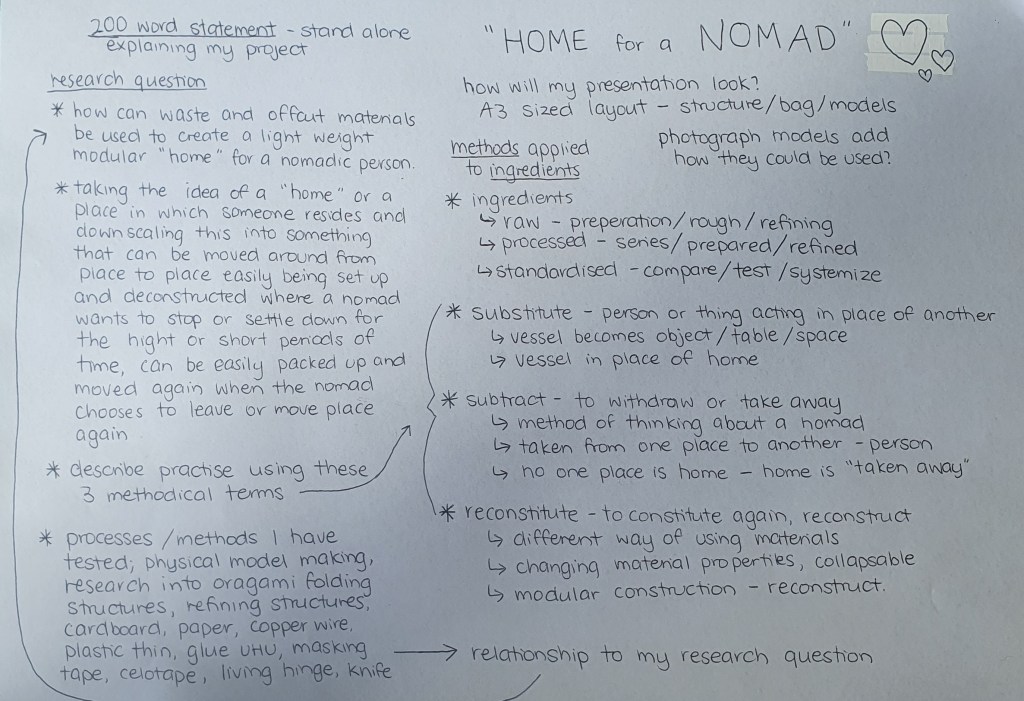 200 word statement - stand alone
explaining my project
research question
* how can waste and offcut materials
be used to create a light weight
modular "home" for a nomadic person.
* taking the idea of a "home" or a
place in which someone resides and
downscaling this into something
that can be moved around from
place to place easily being set up
and deconstructed where a nomad
wants to stop or settle down for
the night or short periods of
time, can be easily packed up and
moved again when the nomad
chooses to leave or move place
again
* describe practise using these
3 methodical terms
* processes / methods I have
tested; physical model making,
research into oragami folding
structures, refining structures,
cardboard, paper, copper wire,
plastic thin, glue UHU, masking
tape, celotape, living hinge, knife
"HOME for a NOMAD"
how will my presentation look?
A3 sized layout - structure/bag/models
photograph models add
how they could be used?
methods applied
to ingredients
* ingredients
↳ raw - preperation/rough/refining
↳ processed - series/prepared/refined
↳ standardised - compare/test/systemize
* substitute - person or thing acting in place of another
↳ vessel becomes object/table/space
↳ vessel in place of home
* subtract - to withdraw or take away
↳ method of thinking about a nomad
↳ taken from one place to another - person
↳ no one place is home - home is "taken away"
* reconstitute - to constitute again, reconstruct
↳ different way of using materials
↳ changing material properties, collapsable
↳ modular construction - reconstruct.
relationship to my research question